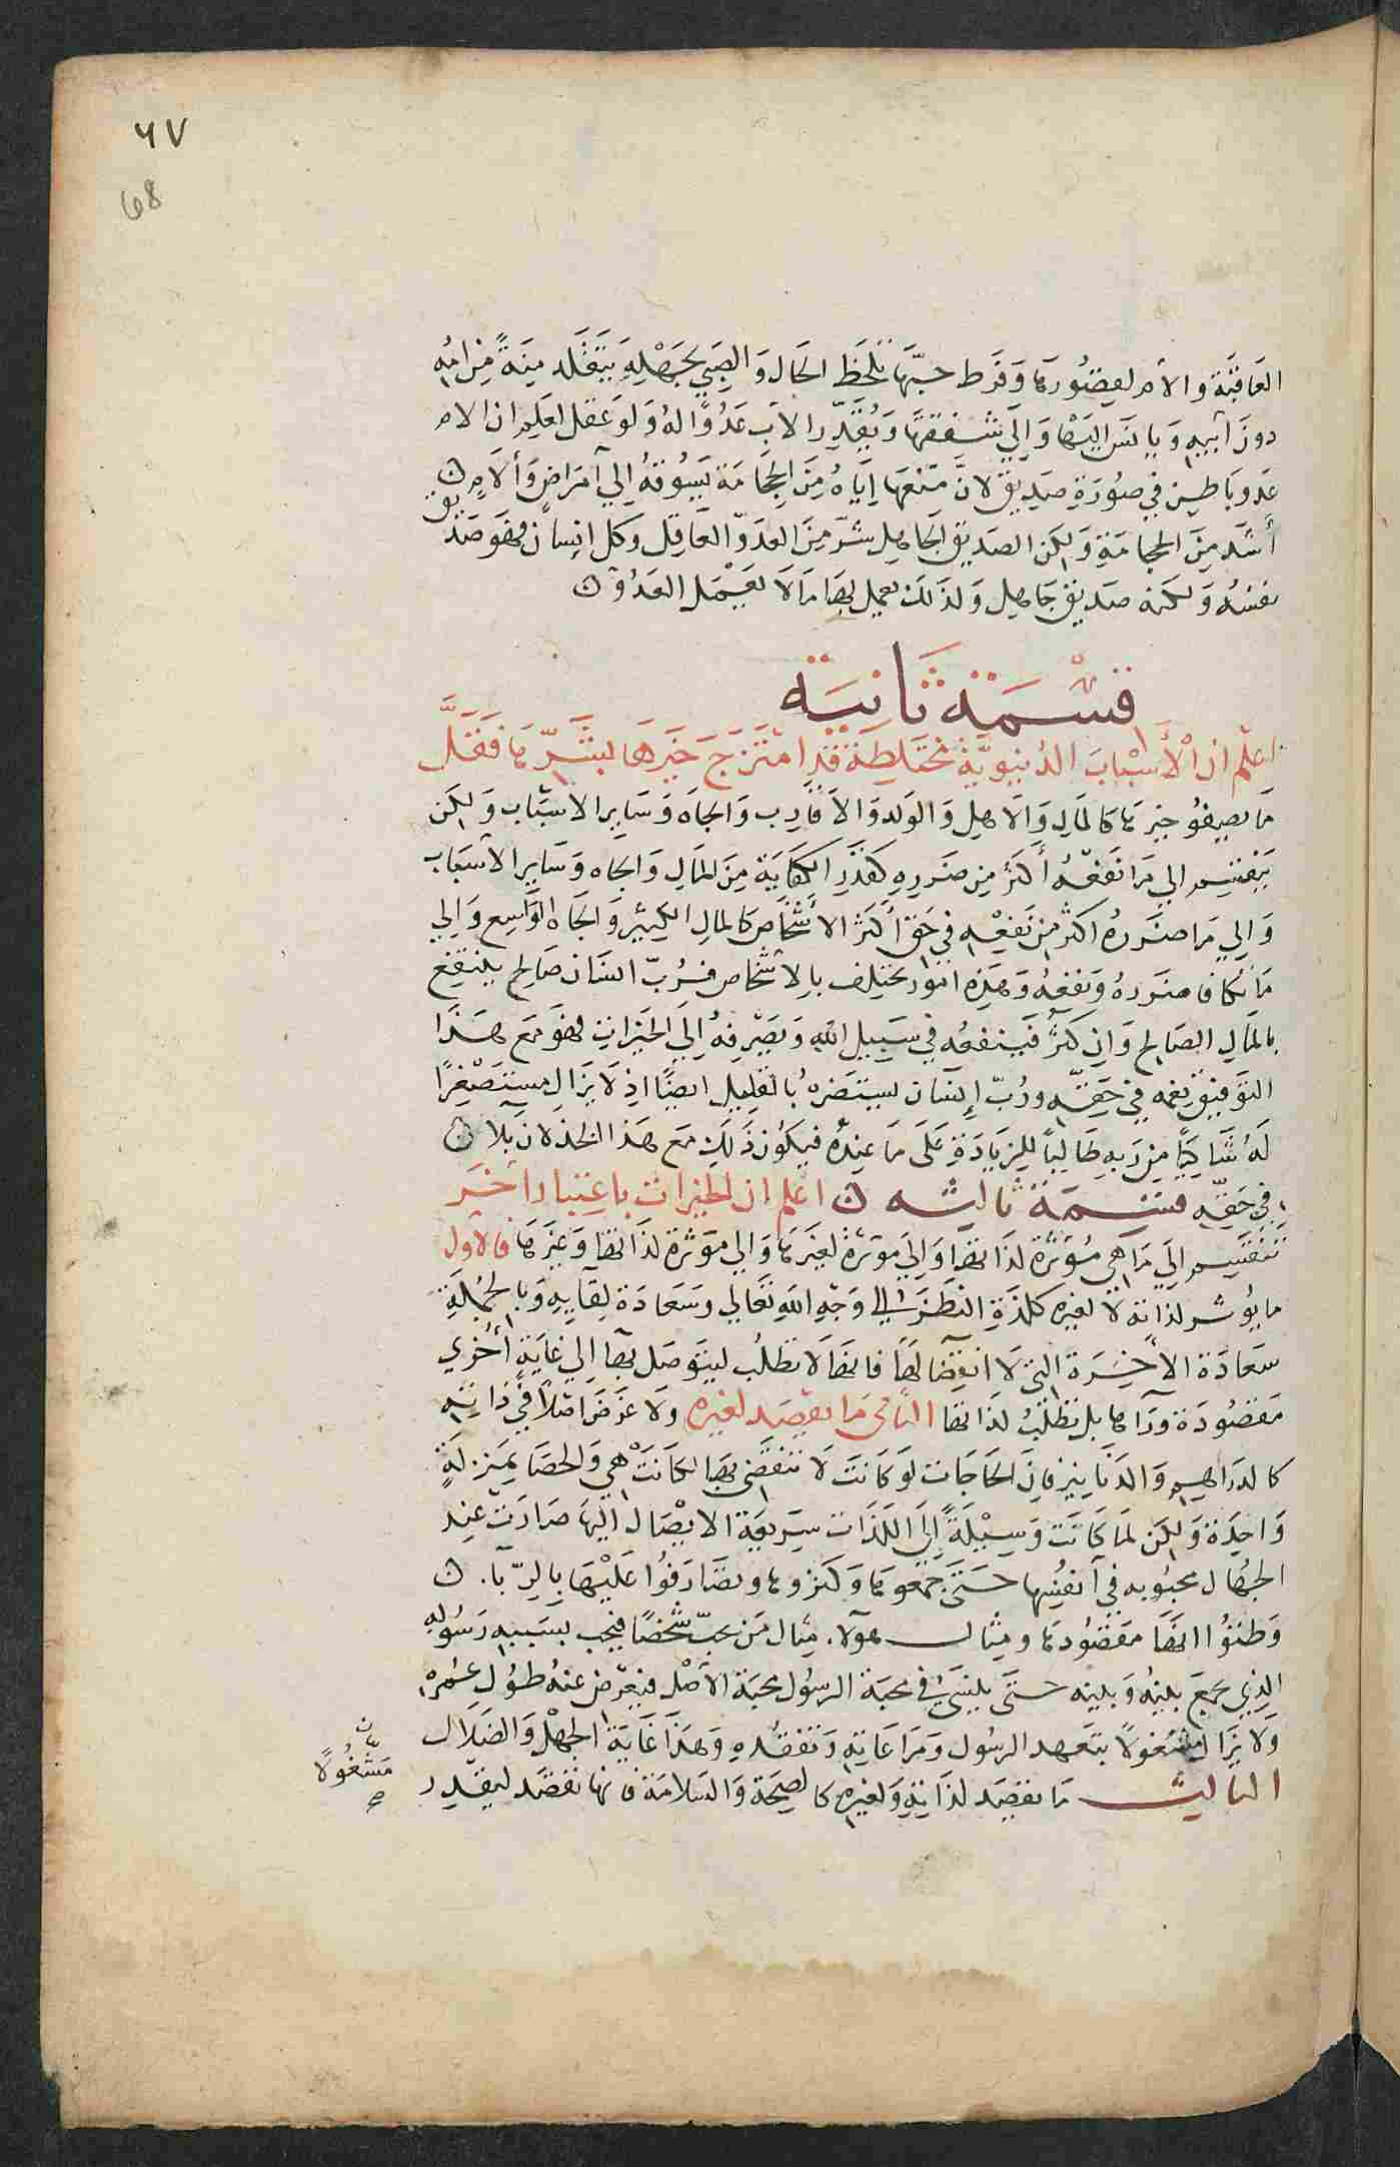 ٦٧
68
العاقبة والأم لقصورها وفرط حبها تلحظ الحال والصبي لجهله يتقلد منة من امه
دون أبيه ويانس اليها والى شفقتها ويقدر الأب عدوا له ولو عقل لعلم ان الام
عدو باطن في صورة صديق لان منعها إياه من الحجامة يسوقه إلي أمراض وألام
أشد من الحجامة ولكن الصديق الجاهل شر من العدو العاقل وكل انسان فهو صديق
نفسه ولكنه صديق جاهل ولذلك يعمل بها ما لا يعمل العدو
قسمة ثانية
اعلم ان الأسباب الدنيوية مختلطة قد امتزج خيرها بشرها فقل
ما يصفو خيرها كالمال والاهل والولد والاقارب والجاه وساير الاسباب ولكن
ينقسم الي ما نفعه أكثر من ضرره كقدر الكفاية من المال والجاه وساير الأسباب
والي ما ضرره اكثر من نفعه في حق أكثر الأشخاص كالمال الكثير والجاه الواسع والي
ما يكافا ضرره ونفعه وهذه امور تختلف بالاشخاص فرب انسان صالح ينتفع
بالمال الصالح وان كثر فينفقه في سبيل الله ويصرفه إلي الخيرات فهو مع هذا
التوفيق نعمه في حقه ورب إنسان يستضره بالقليل ايضا اذ لا يزال مستصغرا
له شاكيا من ربه طالبا للزيادة على ما عنده فيكون ذلك مع هذا الخذلان بلا
في حقه قسمة ثالثه اعلم ان الخيرات باعتبار أخر
تنقسم الي ما هي مؤثرة لذاتها والي موثرة لغيرها والي موثرة لذاتها وغيرها فالاول
ما يؤثر لذاته لا لغيره كلذة النظر الي وجه الله تعالي وسعادة لقايه وبالجملة
سعادة الأخرة التي لا انقضا لها فانها لا تطلب ليتوصل بها الي غاية أخري
مقصودة ورآها بل تطلب لذاتها الثاني ما يقصد لغيره ولا غرض اصلا في ذاته
كالدراهم والدنانير فان الحاجات لو كانت لا تنقضي بها لكانت هي والحصا بمنزلة
واحدة ولكن لما كانت وسيلة إلى اللذات سريعة الايصال اليها صارت عند
الجهال محبوبه في أنفسها حتى جمعوها وكنزوها وتصارفوا عليها بالربا.
وظنوا انها مقصودها ومثال هولا. مثال من يحب شخصا فيحب بسببه رسوله
الذي يجمع بينه وبينه حتى ينسى في محبة الرسول محبة الأصل فيعرض عنه طول عمره
ولا يزال مشغولا بتعهد الرسول ومراعاته وتفقده وهذا غاية الجهل والضلال
مشغولا
الثالث ما يقصد لذاته ولغيره كالصحة والسلامة فانها تقصد ليقدر